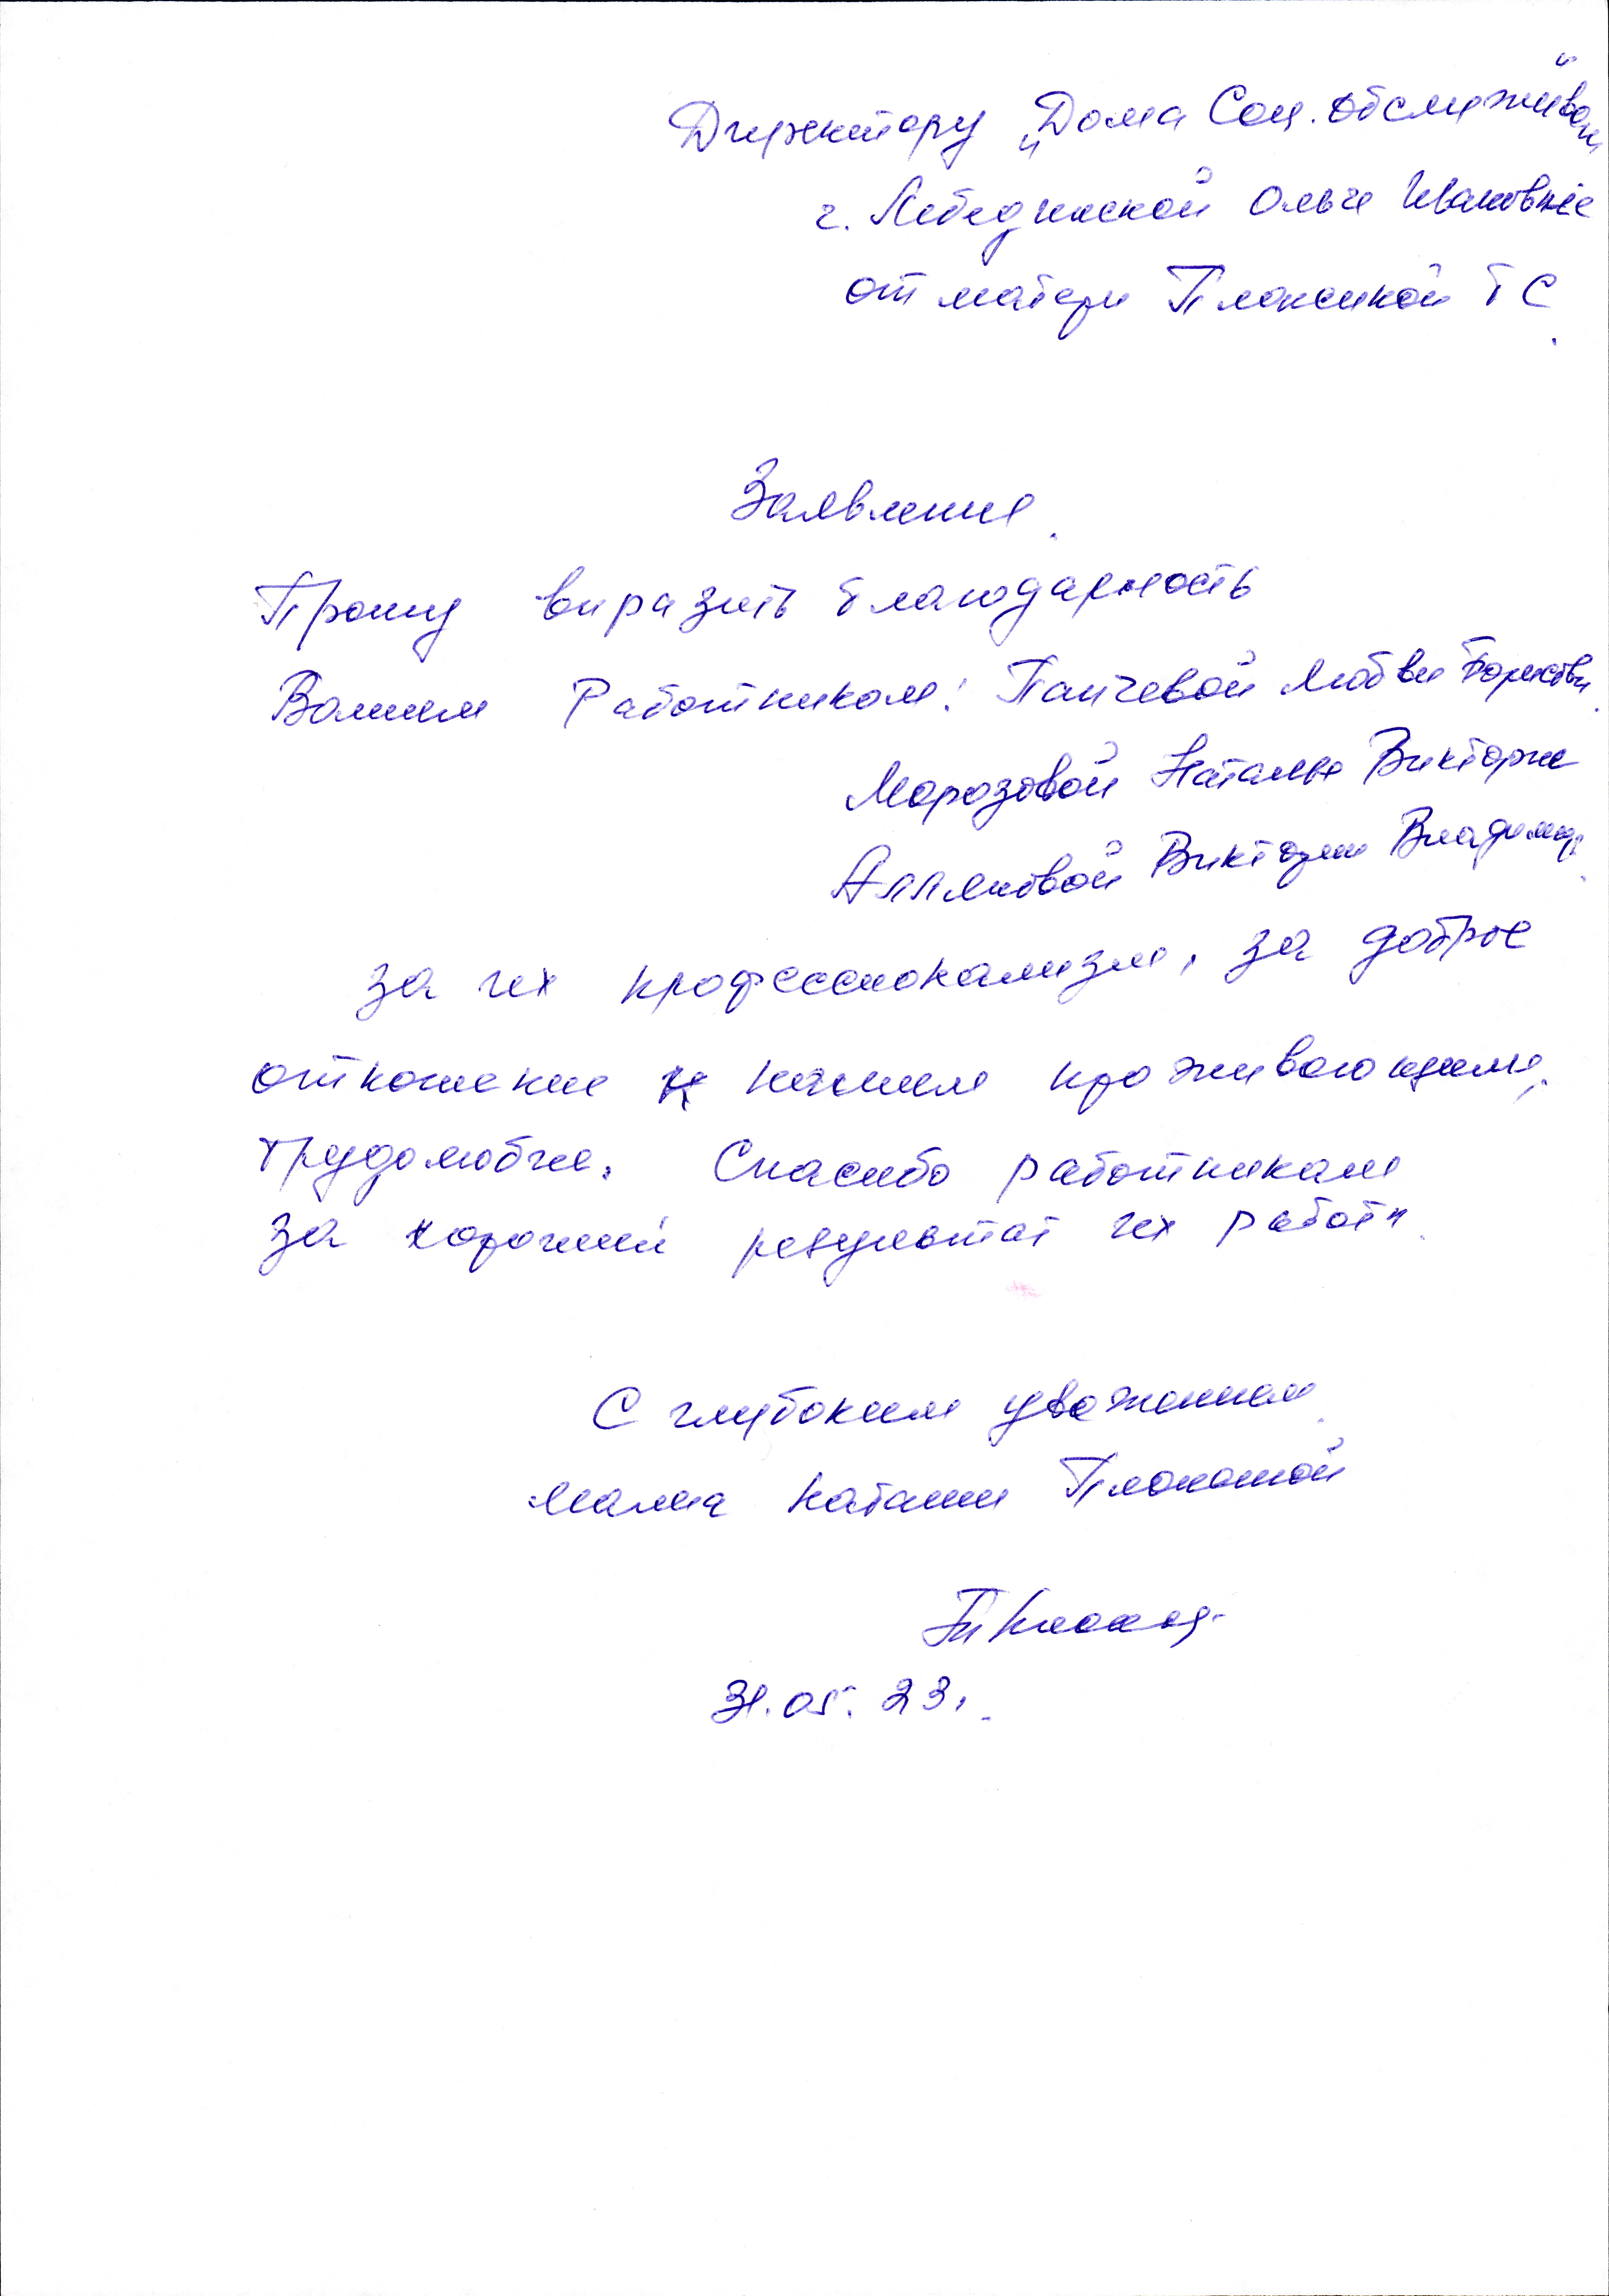 Директору „Дома Соц. обслуживан"
г. Лебединской Ольге Ивановне
от матери Плаксиной Т С.
Заявление.
Прошу выразить благодарность
Вашим Работникам: Панчевой Любви Борисовн.
Морозовой Наталье Викторне
Виктории Владимир.
за их профессионализм, за доброе
отношение к нашим проживающим,
трудолюбие. Спасибо работникам
за хороший результат их работы.
С глубоким уважением.
мама Наташи
31.05.23.